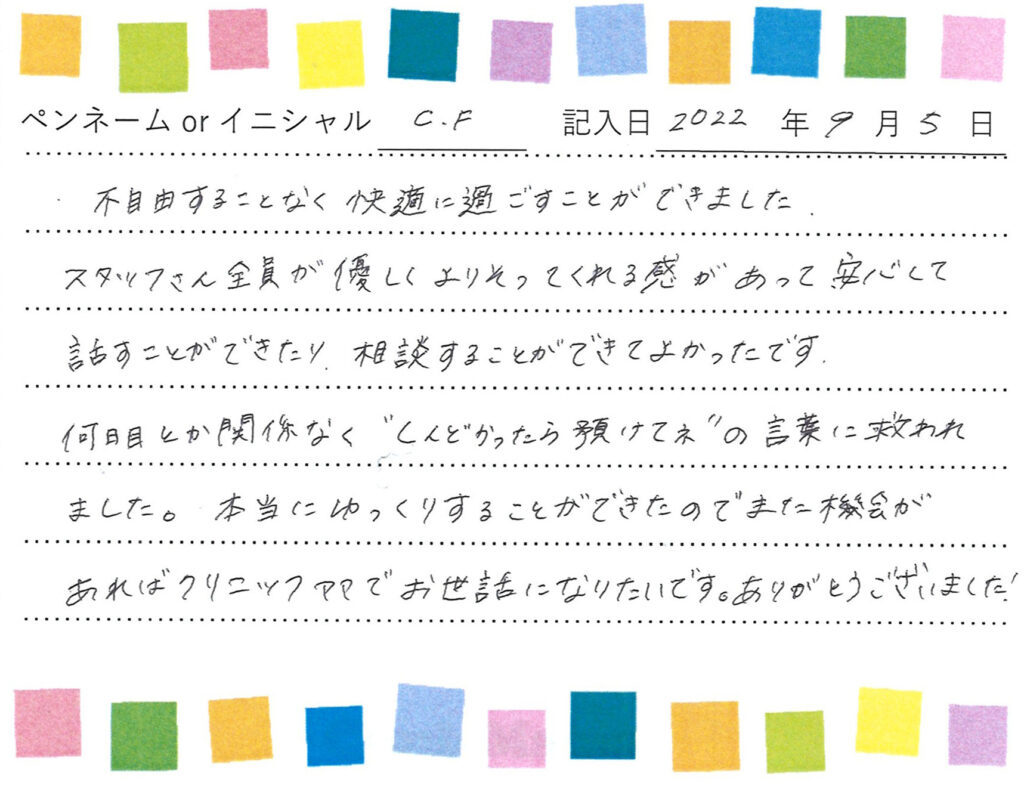 ペンネーム or イニシャル C.F 記入日 2022 年 9 月 5 日
不自由することなく快適に過ごすことができました.
スタッフさん全員が優しくよりそってくれる感があって安心して
話すことができたり、相談することができてよかったです.
何日目とか関係なく"しんどかったら預けてネ"の言葉に救われ
ました。本当にゆっくりすることができたのでまた機会が
あればクリニックママでお世話になりたいです。ありがとうございました!